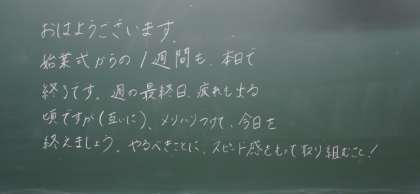 おはようございます。
始業式からの1週間も、本日で
終了です。週の最終日、疲れも出る
頃ですが(互いに)、メリハリつけて、今日を
終えましょう。やるべきことに、スピード感をもって取り組むこと!